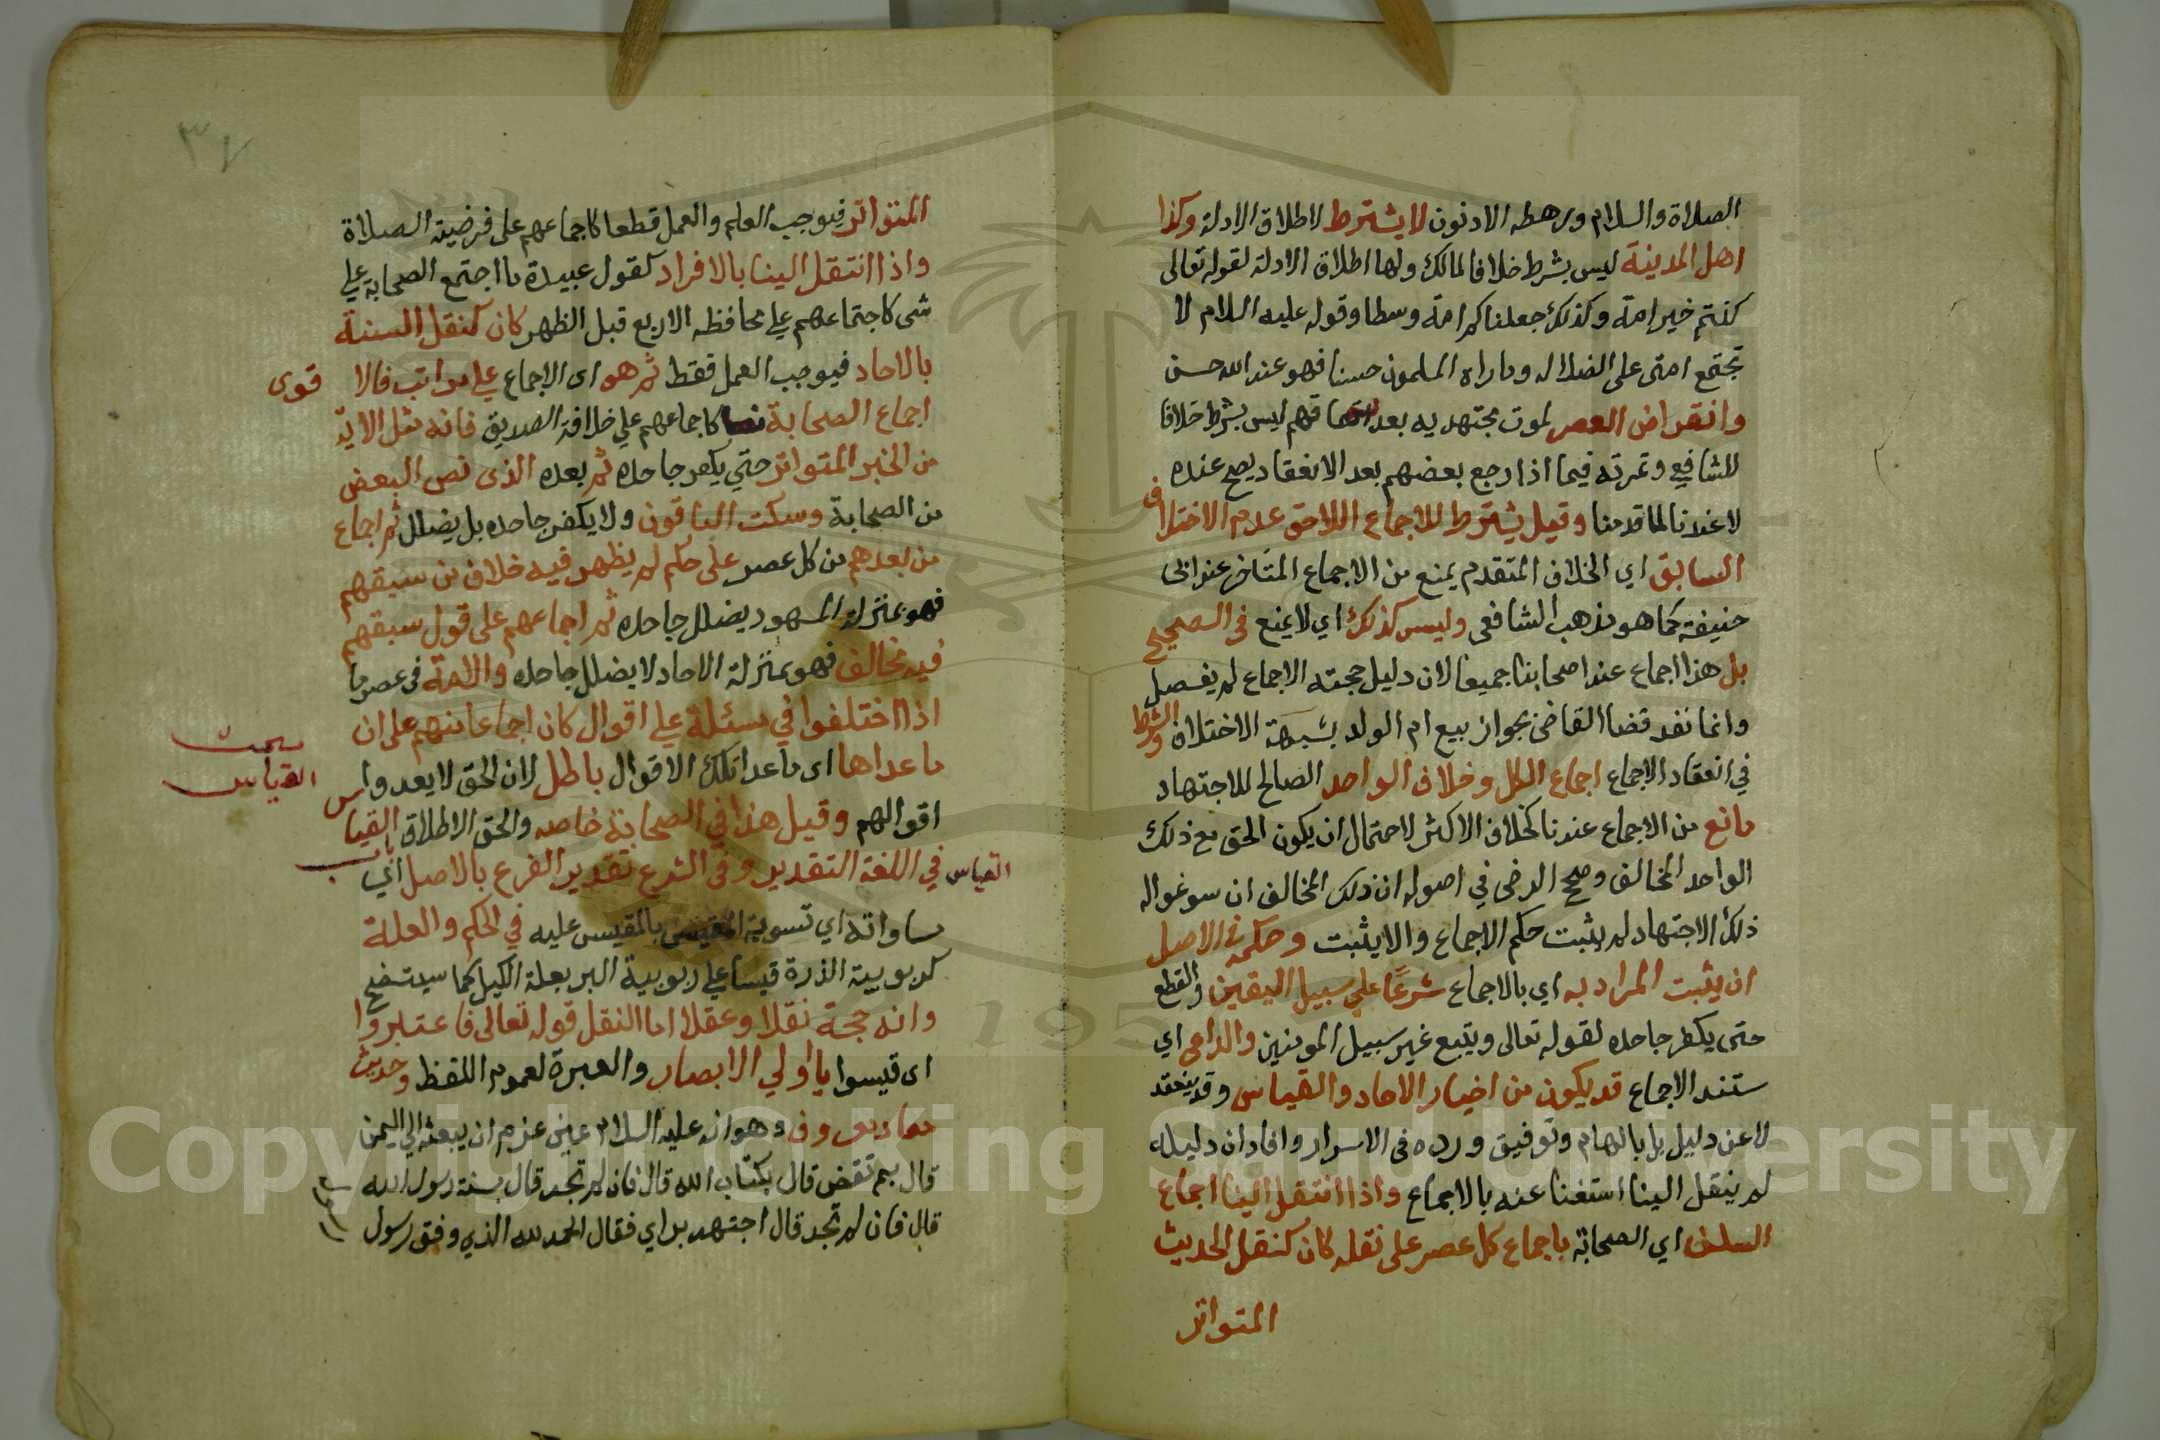 الصلاة والسلام ورهطه الادنون لا يشترط لاطلاق الادلة وكذا
اهل المدينة ليس بشرط خلافا لمالك ولها اطلاق الادلة لقوله تعالى
كنتم خير امة وكذلك جعلناكم امة وسطا وقوله عليه السلام لا
تجتمع امتى على الضلالة وماراه المسلمون حسنا فهو عند الله حسن
وانقراض العصر لموت مجتهديه بعد اتفاقهم ليس بشرط خلافا
للشافعي وثمرته فيما اذا رجع بعضهم بعد الانعقاد يصح عنده
لا عندنا لما قدمنا وقيل يشترط للاجماع اللاحق عدم الاختلاف
السابق اي الخلاف المتقدم يمنع من الاجماع المتاخر عند ابى
حنيفة كما هو مذهب الشافعى وليس كذلك اي لا يمنع فى الصحيح
بل هذا اجماع عند اصحابنا جميعا لان دليل حجته الاجماع لم يفصل
وانما نفد قضا القاضى بجواز بيع ام الولد بشبهة الاختلاف والشرط
في انعقاد الاجماع اجماع الكل وخلاف الواحد الصالح للاجتهاد
مانع من الاجماع عندنا كخلاف الاكثر لاحتمال ان يكون الحق مع ذلك
الواحد المخالف وصحح الرضى في اصوله ان ذلك المخالف ان سوغوا له
ذلك الاجتهاد لم يثبت حكم الاجماع والا يثبت وحكمه في الاصل
ان يثبت المراد به اي بالاجماع شرعا علي سبيل اليقين والقطع
حتى يكفر جاحده لقوله تعالى ويتبع غير سبيل المومنين والداعى اي
ستند الاجماع قد يكون من اخبار الاحاد والقياس وقد ينعقد
لا عن دليل بل بالهام وتوفيق ورده فى الاسرار وافاد ان دليله
لم ينقل الينا استغنا عنه بالاجماع واذا انتقل الينا اجماع
السلف اي الصحابة باجماع كل عصر على نقله كان كنقل الحديث
المتواتر
٣٧
المتواتر فيوجب العلم والعمل قطعا كاجماعهم على فرضية الصلاة
واذا انتقل الينا بالافراد كقول عبيدة ما اجتمع الصحابة علي
شى كاجتماعهم علي محافظة الاربع قبل الظهر كان كنقل السنة
بالاحاد فيوجب العمل فقط ثم هو اى الاجماع علي مراتب فالا قوى
اجماع الصحابة نصا كاجماعهم علي خلافة الصديق فانه مثل الاية
من الخبر المتواتر حتي يكفر جاحده ثم بعده الذى نص البعض
من الصحابة وسكت الباقون ولا يكفر جاحده بل يضلل ثم اجماع
من بعدهم من كل عصر على حكم لم يظهر فيه خلاف من سبقهم
فهو بمنزلة المشهور يضلل جاحده ثم اجماعهم على قول سبقهم
فيه مخالف فهو بمنزلة الاحاد لا يضلل جاحده والامة فى عصر ما
اذا اختلفوا في مسئلة علي اقوال كان اجماعا منهم على ان
ما عداها اى ما عدا تلك الاقوال باطل لان الحق لا يعدوا
اقوالهم وقيل هذا في الصحابة خاصه والحق الاطلاق باب القياس
مبحث
القياس
القياس في اللغة التقدير وفى الشرع تقدير الفرع بالاصل اي
مساواته اي تسوية المقيس بالمقيس عليه في الحكم والعلة
كربوبية الذرة قيسا علي ربوبية البر بعلة الكيل كما سيتضح
وانه حجة نقلا وعقلا اما النقل قوله تعالى فاعتبروا
اى قيسوا يا اولي الابصار والعبرة لعموم اللفظ وحديث
معاد معروف وهو انه عليه السلام حين عزم ان يبعثه الي اليمن
قال بم تقض قال بكتاب الله قال فان لم تجد قال بسنة رسول الله
قال فان لم تجد قال اجتهد براي فقال الحمد لله الذي وفق رسول
Copyright © King Saud University
195